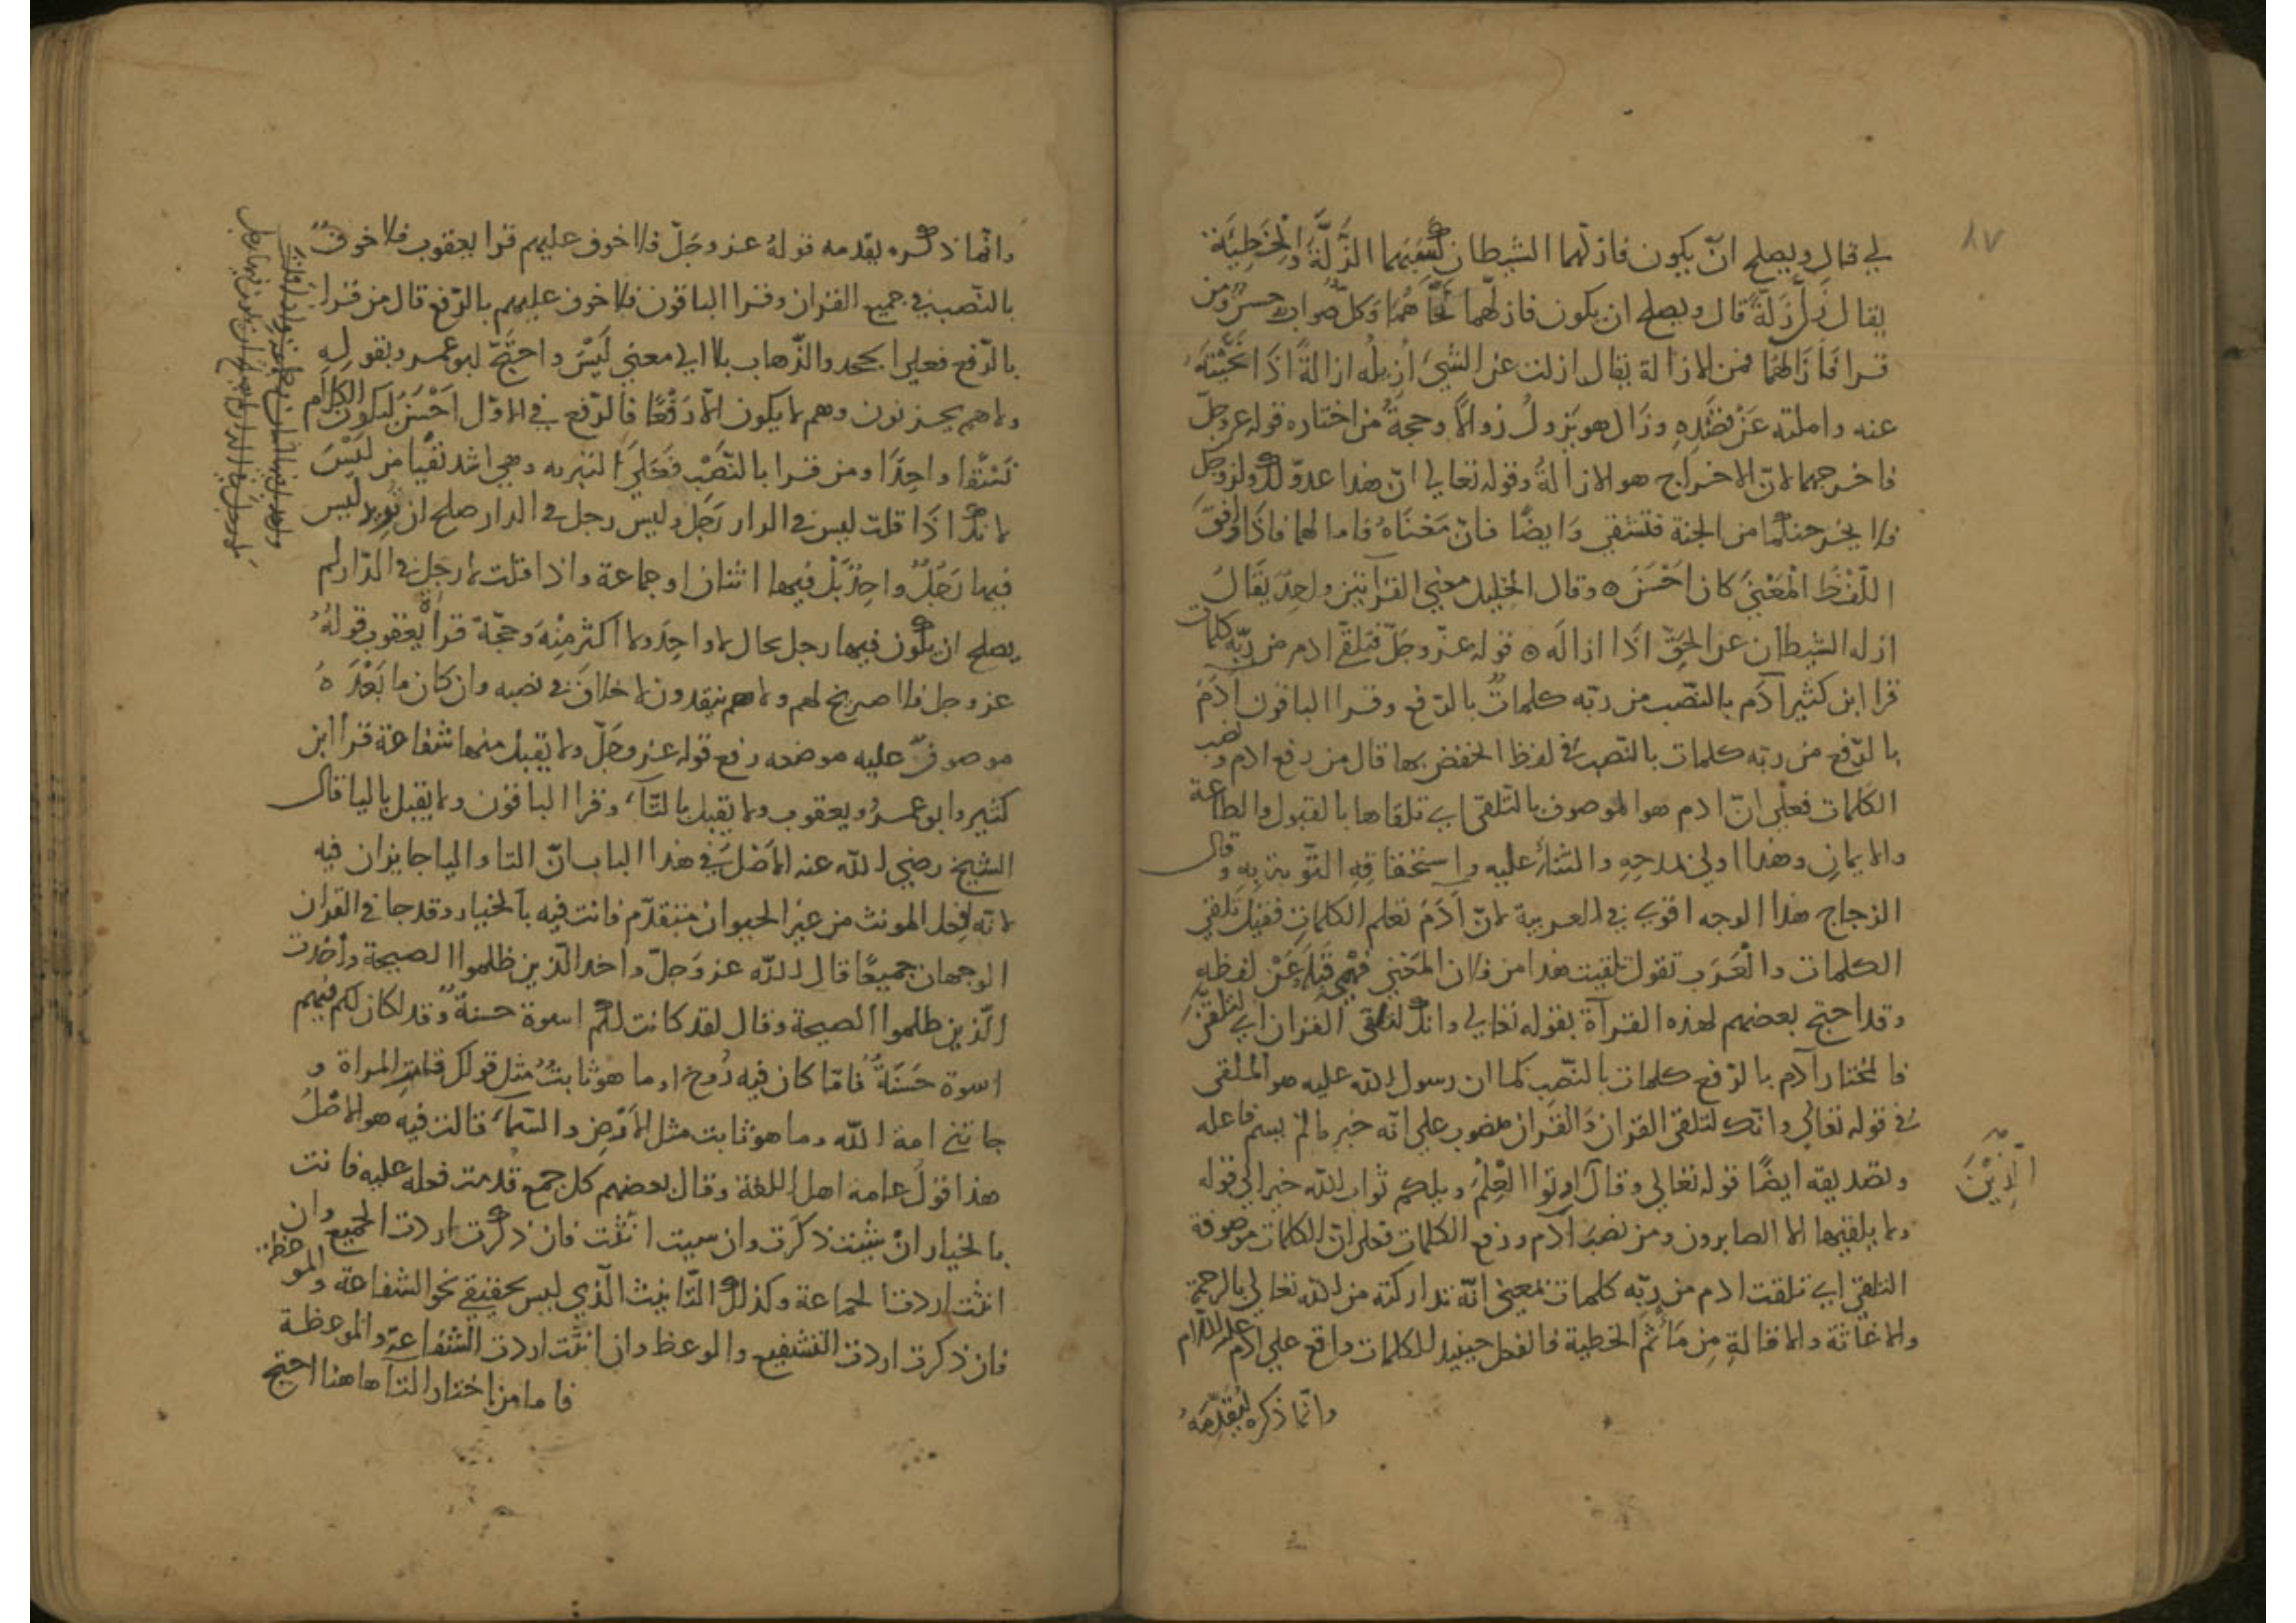 ٨٧
لي فزال ويصلح ان يكون فازلهما الشيطان لسببهما الزلة والخطيئة
يقال زل زلة قال ويصلح ان يكون فازلهما نحاهما وكل صواب حسن ومن
قرا فازالهما فمن الازالة يقال ازلت عن الشيء ازيله ازالة اذا نحيته
عنه واملته عن قصده وزال هو يزول زوالا وحجة من اختاره قوله عز وجل
فاخرجهما لان الاخراج هو الازالة وقوله تعالى ان هذا عدو لك ولزوجك
فلا يخرجنكما من الجنة فتشقى وايضا فان معناه فامالهما فاذا وافق
اللفظ المعنى كان احسن ٥ وقال الخليل معنى القرآتين واحد يقال
ازله الشيطان عن الحق اذا ازاله ٥ قوله عز وجل فتلقى ادم من ربه كلمات
قرا ابن كثير آدم بالنصب من ربه كلمات بالرفع وقرا الباقون آدم
بالرفع من ربه كلمات بالنصب في لفظ الخفض بها قال من رفع ادم ونصب
الكلمات فعلى ان ادم هو الموصوف بالتلقى اي تلقاها بالقبول والطاعة
والايمان وهذا اولى بمدحه والثناء عليه واستحقاقه التوبة به وقال
الزجاج هذا الوجه اقوى في العربية لان آدم تعلم الكلمات فقيل تلقى
الكلمات والعرب تقول تلقيت هذا من فلان المعنى فهمي قبله عن لفظه
وقد احتج بعضهم لهذه القرآة بقوله تعالى وانك لتلقى القران اي لتلقن
فالمختار آدم بالرفع كلمات بالنصب كما ان رسول الله عليه هو الملقى
في قوله تعالى وانك لتلقى القران والقران منصوب على انه خبر ما لم يسم فاعله
وتصديقه ايضا قوله تعالى وقال اوتوا العلم ويلكم ثواب الله خير الى قوله
الذين
ولا يلقيها الا الصابرون ومن نصب آدم ورفع الكلمات فعلى ان الكلمات موصوفة
التلقي اي تلقت ادم من ربه كلمات بمعنى انه تداركته من الله تعالى بالرحمة
والاغاثة والاقالة من مأثم الخطية فالفعل حينيد للكلمات واقع على ادم عليه السلام
وانما ذكره لتقدمه
وانما ذكره بتقدمه قوله عز وجل فلا خوف عليهم قرا يعقوب فلا خوف
بالنصب في جميع القران وقرا الباقون فلا خوف عليهم بالرفع قال من قرا
بالرفع فعلى الجحد والذهاب بلا الى معنى ليس واحتج ابو عمر وبقوله
ولا هم يحزنون وهم لا يكون الا رفعا فالرفع في الاول احسن ليكون الكلام
نسقا واحدا ومن قرا بالنصب فعلى التبريه وهي اشد نفيا من ليس
لانك اذا قلت ليس في الدار رجل وليس رجل في الدار صلح ان تريد ليس
فيها رجل واحد بل فيها اثنان او جماعة واذا قلت لا رجل في الدار لم
يصلح ان يكون فيها رجل بحال لا واحد ولا اكثر منه وحجة قرأ يعقوب قوله
عز وجل فلا صريخ لهم ولا هم ينقذون لا خلاف في نصبه وان كان ما بعده
موصوف عليه موضعه رفع قوله عز وجل ولا يقبل منها شفاعة قرا ابن
كثير وابو عمرو ويعقوب ولا تقبل بالتاء وقرا الباقون ولا يقبل باليا قال
الشيخ رضي الله عنه الاصل في هذا الباب ان التا واليا جايزان فيه
لانه فعل المونث من غير الحيوان متقدم فانت فيه بالخيار وقد جا في القران
الوجهان جميعا قال الله عز وجل واخد الذين ظلموا الصيحة وأخدت
الذين ظلموا الصيحة وقال لقد كانت لكم اسوة حسنة وقد لكان لكم فيهم
اسوة حسنة فاما كان فيه روح او ما هو ثابت مثل قولك قامت المراة و
جاتني امة الله وما هو ثابت مثل الارض والسماء قالت فيه هو الاصل
هذا قول عامة اهل اللغة وقال بعضهم كل جمع قدمت فعله عليه فانت
بالخيار ان شيت ذكرت وان سيت انثت فان ذكرت اردت الجميع وان
انثت اردت الجماعة وكذلك التانيث الذي ليس بحقيقي نحو الشفاعة والموعظة
فان ذكرت اردت التشفيع والوعظ وان انثت اردت الشفاعة والموعظة
فاما من اختار التآ هاهنا احتج